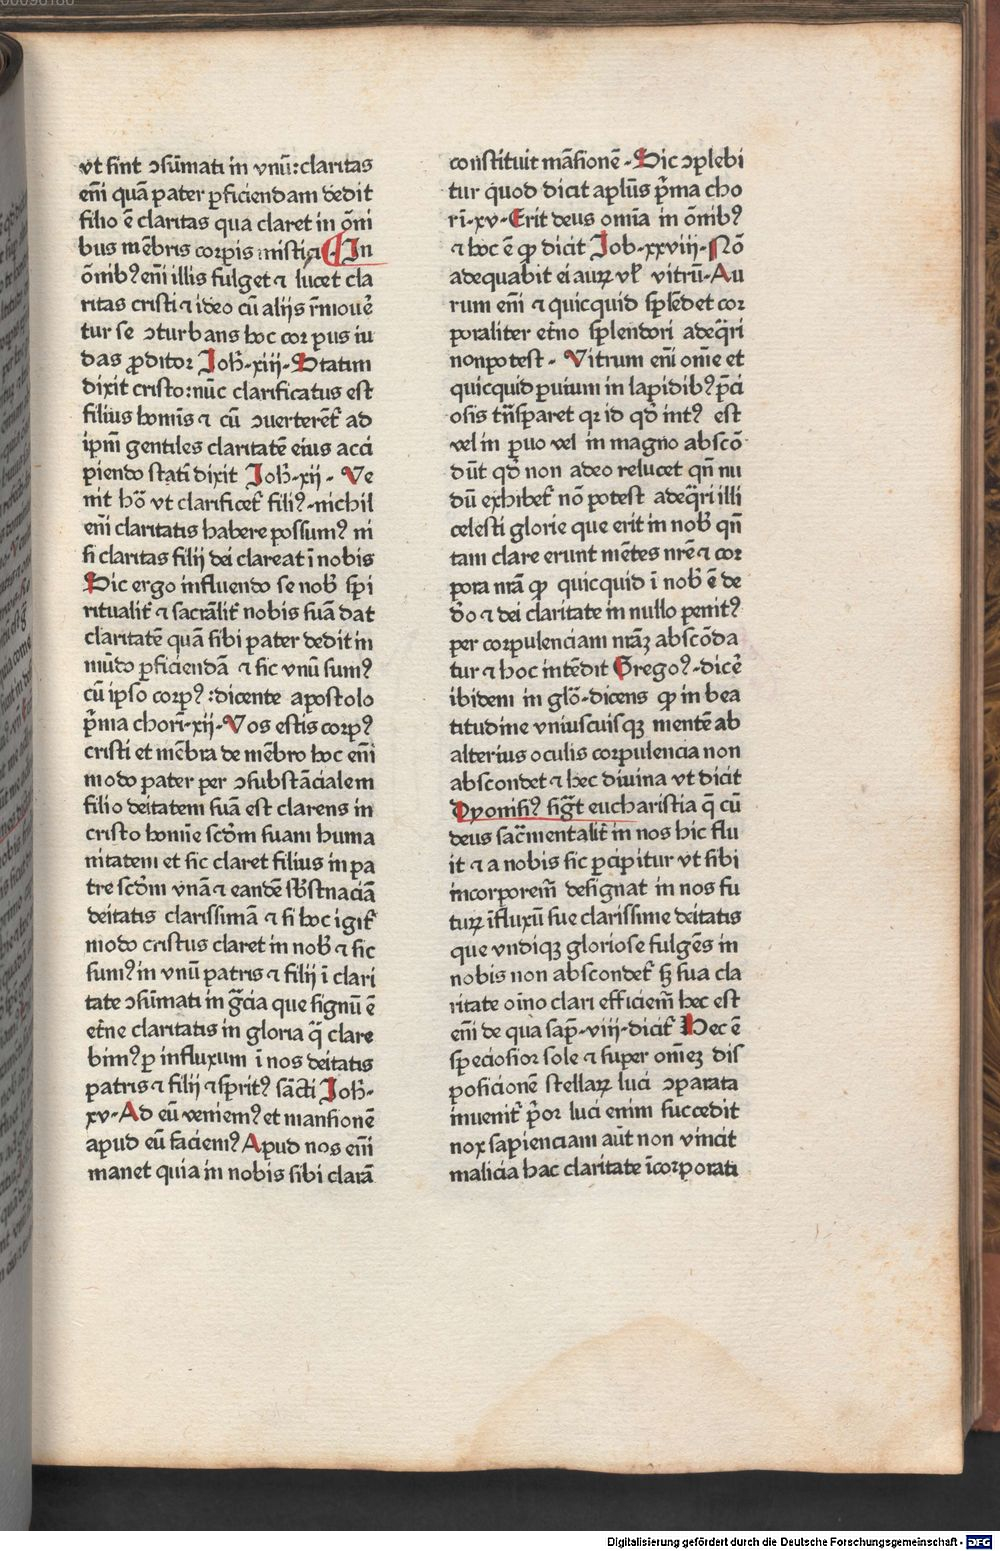 vt sint ꝯsūmati in vnū: claritas
em̄i quā pater ꝑficiendam dedit
filio ē claritas qua claret in ōni
bus mēbris corpis mistici In
ōnibꝰ em̄i illis fulget ⁊ lucet cla
ritas cristi ⁊ ideo cū alijs r̄moue᷑
tur se ꝯturbans hoc corpus iu
das ꝓditor Joh̄·xiij·Statim
dixit cristo: nūc clarificatus est
filius homīs ⁊ cū ꝯuerterēt᷑ ad
ipm̄ gentiles claritatē eius acci
piendo stati dixit Joh̄·xij· Ve
nit hō vt clarificet᷑ filiꝰ·nichil
em̄i claritatis habere possumꝰ ni
si claritas filij dei clareat ī nobis
Sic ergo influendo se nob᷑ spi
ritualit᷑ ⁊ sacralit᷑ nobis suā dat
claritatē quā sibi pater dedit in
mūdo ꝑficiendā ⁊ sic vnū sumꝰ
cū ipso corpꝰ: dicente apostolo
p̄ma chori·xij·Vos estis corpꝰ
cristi et mēbra de mēbro hoc em̄i
modo pater per ꝯsubstācialem
filio deitatem suā est clarens in
cristo homīe scd̄m suam huma
nitatem et sic claret filius in pa
tre scd̄m vnā ⁊ eandē sb̄stnaciā
deitatis clarissimā ⁊ si hoc igit᷑
modo cristus claret in nob᷑ ⁊ sic
sumꝰ in vnū patris ⁊ filij ī clari
tate ꝯsūmati in gr̄cia que signū ē
et̄ne claritatis in gloria q̄ clare
bimꝰ ꝑ influxum ī nos deitatis
patris ⁊ filij ⁊ spritꝰ sācti Joh̄·
xv·Ad eū veniemꝰ et mansionē
apud eū faciemꝰ Apud nos em̄i
manet quia in nobis sibi clarā
constituit māsionē·Sic ꝯplebi
tur quod dicit apl̄us p̄ma cho
ri·xv·Erit deus omīa in ōnibꝰ
⁊ hoc ē ꝙ dicit Job·xxviij·Nō
adequabit ei auꝝ vl᷑ vitrū·Au
rum em̄i ⁊ quicquid splēdet cor
poraliter et̄no splendori adeq̄ri
nonpotest· Vitrum em̄i omē et
quicquid ꝑuium in lapidibꝰ p̄ci
osis trn̄sparet qr id qd̄ intꝰ est
vel in ꝑuo vel in magno abscō
dūt qd̄ non adeo relucet qn̄ nu
dū exhibet᷑ nō potest adeq̄ri illi
celesti glorie que erit in nob᷑ qn̄
tam clare erunt mētes nr̄e ⁊ cor
pora nr̄a ꝙ quicquid ī nob᷑ ē de
d̄o ⁊ dei claritate in nullo penitꝰ
per corpulenciam nr̄aꝫ abscōda
tur ⁊ hoc intēdit Gregoꝰ·dicē
ibidem in glō·dicens ꝙ in bea
titudine vniuscuisqꝫ mentē ab
alterius oculis corpulencia non
abscondet ⁊ hec diuina vt dicit
Dyonisiꝰ sigt᷑ eucharistia q̄ cū
deus sac̄mentalit᷑ in nos hic flu
it ⁊ a nobis sic ꝑcipitur vt sibi
incorporem̄ designat in nos fu
tuꝝ īfluxū sue clarissime deitatis
que vndiqꝫ gloriose fulgēs in
nobis non abscondet᷑ sꝫ sua cla
ritate oīno clari efficiem̄ hec est
em̄i de qua sap̄·viij·dicit᷑ Hec ē
speciosior sole ⁊ super omēꝫ dis
posicionē stellaꝝ luci ꝯparata
inuenit᷑ p̄or luci enim succedit
nox sapienciam aūt non vincit
malicia hac claritate īcorporati
Digitalisierung gefördert durch die Deutsche Forschungsgemeinschaft - DFG